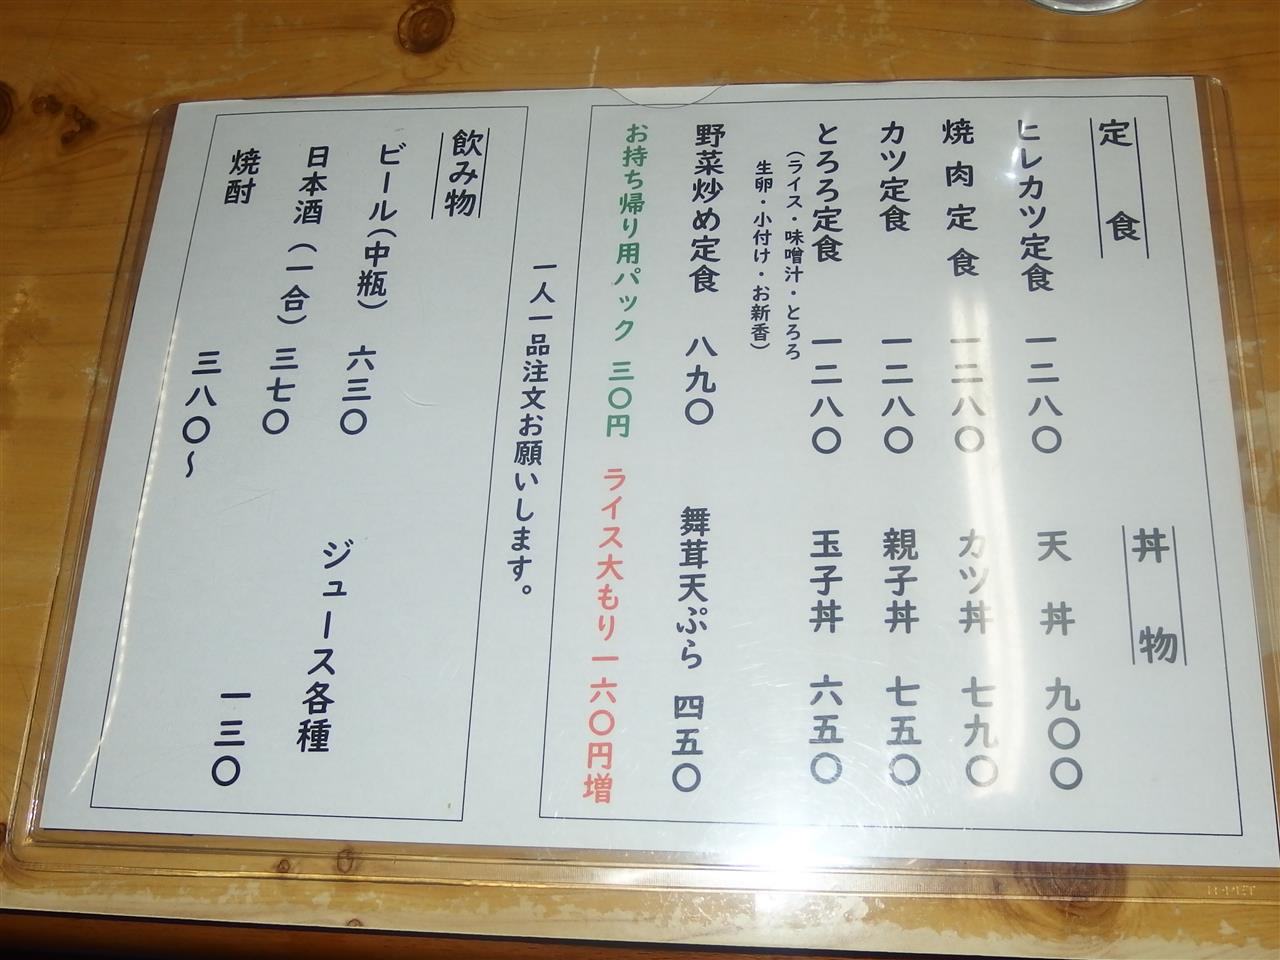 定食
ヒレカツ定食 一二八〇
焼肉定食 一二八〇
カツ定食 一二八〇
とろろ定食 一二八〇
（ライス・味噌汁・とろろ
生卵・小付け・お新香）
野菜炒め定食 八九〇
丼物
天丼 九〇〇
カツ丼 七九〇
親子丼 七五〇
玉子丼 六五〇
舞茸天ぷら 四五〇
お持ち帰り用パック 三〇円 ライス大もり一六〇円増
一人一品注文お願いします。
飲み物
ビール（中瓶） 六三〇
日本酒（一合） 三七〇
焼酎 三八〇～
ジュース各種 一三〇